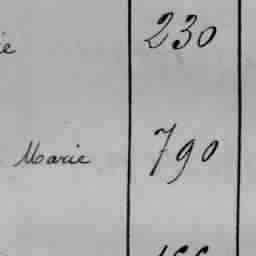 230
Marie 790